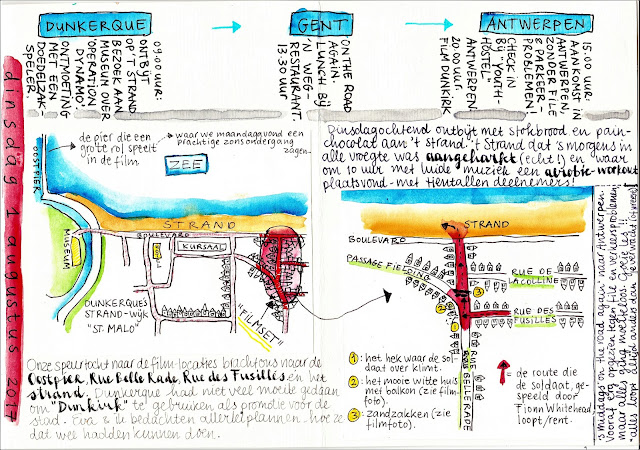 DUNKERQUE
GENT
ANTWERPEN
09.00 UUR:
ONTBIJT
OP 'T STRAND
BEZOEK AAN
MUSEUM OVER
"OPERATION
DYNAMO".
ONTMOETING
MET EEN
DOEDELZAK
SPELER.
ON THE ROAD
AGAIN.
LUNCH BIJ
'N WEG-
RESTAURANT.
13.30 UUR
15.00 UUR:
AANKOMST IN
ANTWERPEN,
ZONDER FILE
& PARKEER-
PROBLEMEN.
CHECK IN
BIJ "YOUTH-
HOSTEL"
ANTWERPEN
20.00 UUR.
FILM DUNKIRK
dinsdag 1 augustus 2017
OOSTPIER
de pier die een
grote rol speelt
in de film
waar we maandagavond een
prachtige zonsondergang
zagen
ZEE
STRAND
BOULEVARD
KURSAAL
MUSEUM
HOTEL
DUNKERQUES
STRAND-WIJK
"ST. MALO"
"FILMSET"
Onze speurtocht naar de film-locaties brachten ons naar de
Oostpier, Rue Belle Rade, Rue des Fusillés en het
strand. Dunkerque had niet veel moeite gedaan
om "Dunkirk" te gebruiken als promotie voor de
stad. Eva & ik bedachten allerlei plannen hoe ze
dat wel hadden kunnen doen.
Dinsdagochtend ontbijt met stokbrood en pain-
chocolat aan 't strand. 't Strand dat 's morgens in
alle vroegte was aangeharkt (echt!) en waar
om 10 uur met luide muziek een aërobic-workout
plaatsvond - met tientallen deelnemers!
STRAND
BOULEVARD
PASSAGE FIELDING
RUE DE
LACOLLINE
RUE DES
FUSILLÉS
RUE BELLE RADE
3
2
1
1: het hek waar de sol-
daat over klimt.
2: het mooie witte huis
met balkon (zie film-
foto).
3: zandzakken (zie
filmfoto).
= de route die
de soldaat, ge-
speeld door
Fionn Whitehead,
loopt/rent.
's middags "on the road again" naar Antwerpen.
vooraf erg opgezien tegen file en verkeersproblemen
maar alles ging moeiteloos. Joeie!!